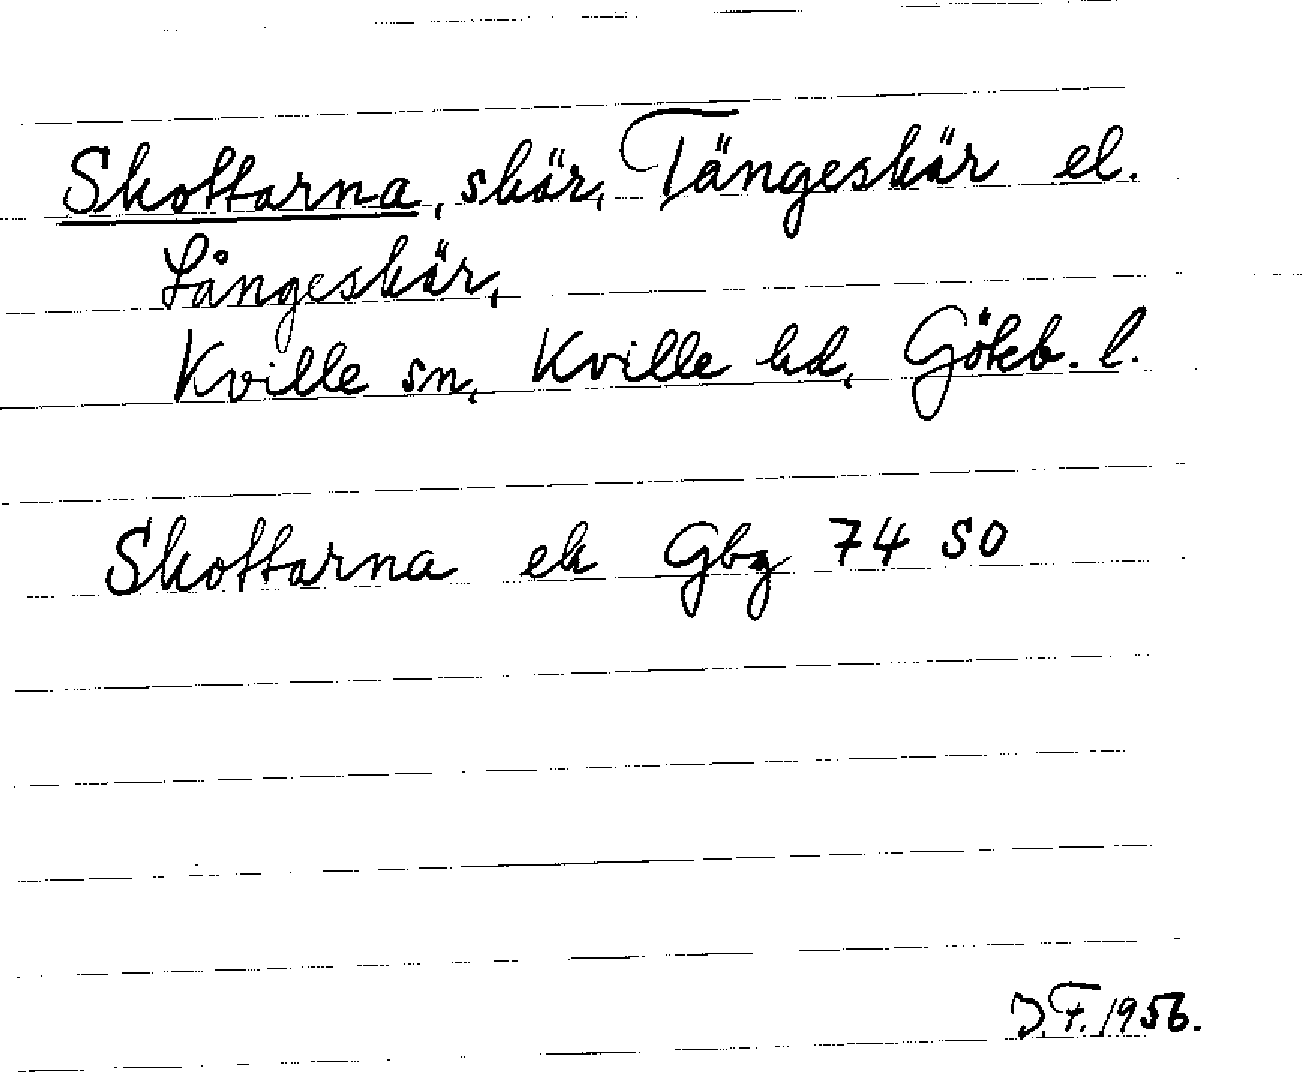 Skottarna, skär, Tängeskär el.
Långeskär,
Kville sn, Kville hd, Göteb. l.
Skottarna ek Gbg 74 SO
D.F. 1956.